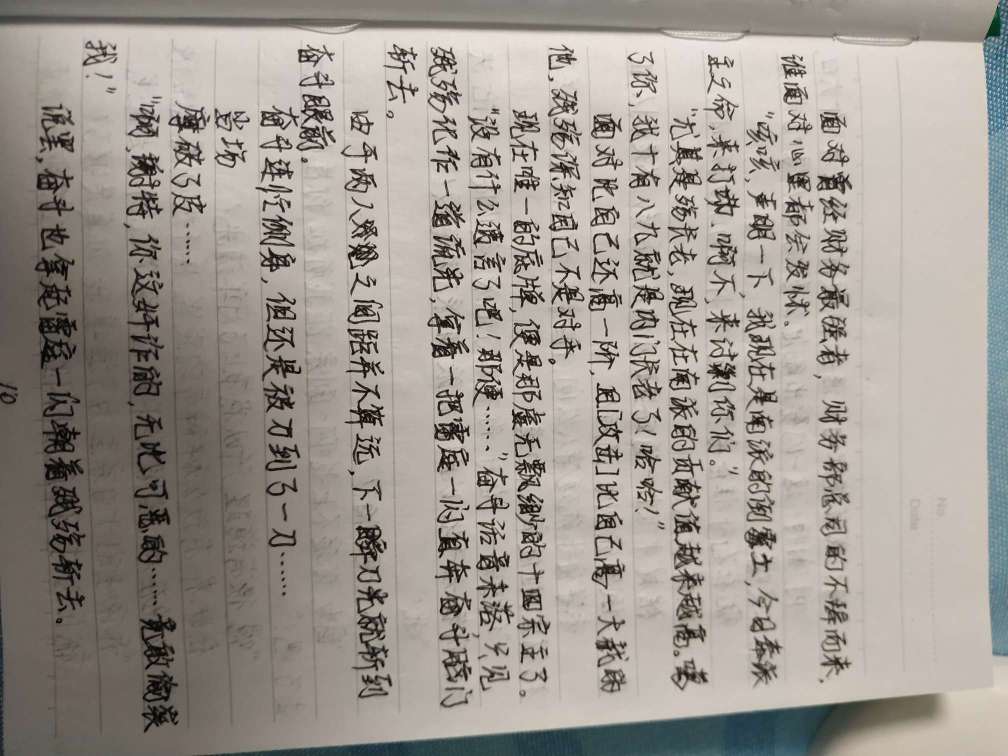 No.
Date
面对曾经财务最强者，财务部总司的不辞而来，
谁面对心里都会发怵。
“咳咳，声明一下，我现在是南派的倒蒙士，今日奉派
主之命，来打劫、啊不，来讨剿你们。”
“尤其是殇长去，现在在南派的贡献值越来越高。嘎
了你，我十有八九就是内门长去了！哈哈！”
面对比自己还高一阶，且攻击比自己高一大截的
他，残殇深知自己不是对手。
现在唯一的底牌，便是那虚无飘缈的十四宗主了。
“没有什么遗言了吧！那便……”奋斗话音未落，只见
残殇化作一道流光，拿着一把雷庭一闪直奔奋斗脑门
斩去。
由于两人之间距并不算远，下一瞬刀光就斩到
奋斗眼前。
奋斗进行侧身，但还是被刀到了一刀……
当场
摩破了皮……
“啊，谢特，你这奸诈的，无比可恶的……竟敢偷袭
我！”
说罢，奋斗也拿起雷庭一闪朝着残殇斩去。
10